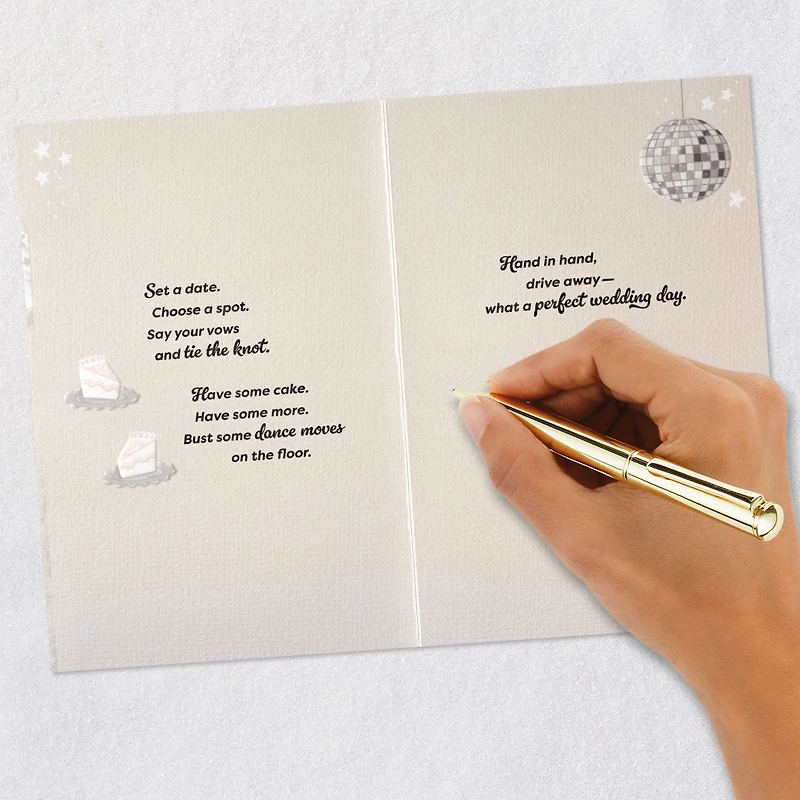 Set a date.
Choose a spot.
Say your vows
and tie the knot.
Have some cake.
Have some more.
Bust some dance moves
on the floor.
Hand in hand,
drive away—
what a perfect wedding day.